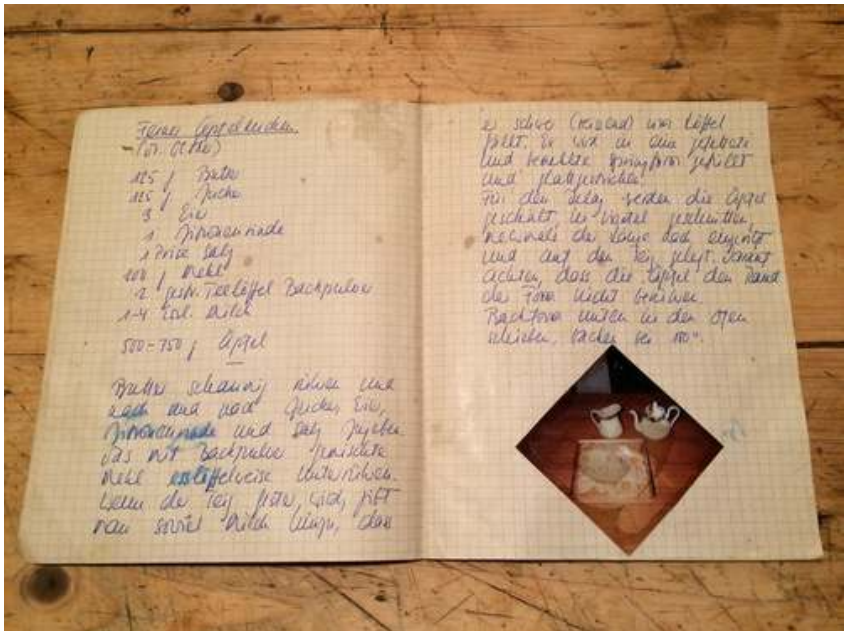 Feiner Apfelkuchen
(Dr. Oetker)
125 g Butter
125 g Zucker
3 Eier
1 Zitronenrinde
1 Prise Salz
200 g Mehl
2 gestr. Teelöffel Backpulver
1-4 Essl. Milch
500-750 g Äpfel
Butter schaumig rühren und
nach und nach Zucker, Eier,
Zitronenrinde und Salz zugeben.
Das mit Backpulver gemischte
Mehl esslöffelweise unterrühren.
Wenn der Teig fester wird, gibt
man soviel Milch hinzu, dass
er schwer (reissend) vom Löffel
fällt. Er wird in eine gefettete
und bemehlte Springform gefüllt
und glattgestrichen.
Für den Belag werden die Äpfel
geschält, in Viertel geschnitten,
mehrmals der Länge nach eingeritzt
und auf den Teig gelegt. Darauf
achten, dass die Äpfel den Rand
der Form nicht berühren.
Backform unten in den Ofen
schieben, backen bei